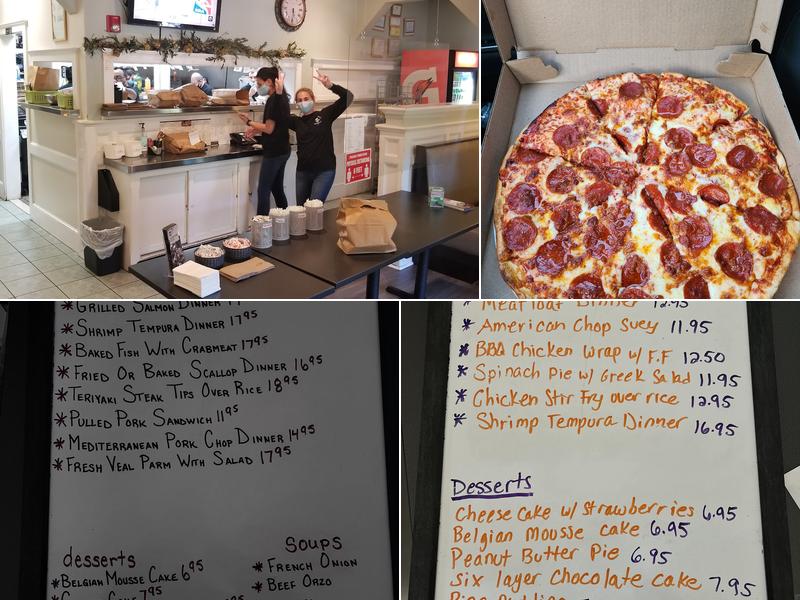 GRILLED SALMON DINNER
SHRIMP TEMPURA DINNER 17.95
* BAKED FISH WITH CRABMEAT 17.95
* FRIED OR BAKED SCALLOP DINNER 16.95
* TERIYAKI STEAK TIPS OVER RICE 18.95
* PULLED PORK SANDWICH 11.95
* MEDITERRANEAN PORK CHOP DINNER 14.95
* FRESH VEAL PARM WITH SALAD 17.95
desserts
* BELGIAN MOUSSE CAKE 6.95
CAKE 7.95
SOUPS
* FRENCH ONION
* BEEF ORZO
* Meatloaf Dinner 12.95
* American Chop Suey 11.95
* BBQ Chicken Wrap w/ F.F 12.50
* Spinach Pie w/ Greek Salad 11.95
* Chicken Stir Fry over rice 12.95
* Shrimp Tempura Dinner 16.95
Desserts
Cheese Cake w/ Strawberries 6.95
Belgian Mousse cake 6.95
Peanut Butter Pie 6.95
Six layer Chocolate cake 7.95